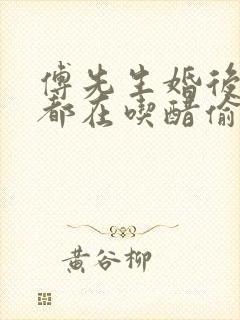 傅先生婚後
都在喫醋偷
黃谷柳